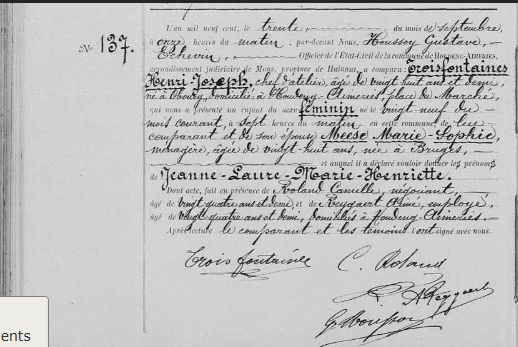 No 137.
L'an mil neuf cent, le trente, du mois de septembre,
à onze heures du matin, par-devant Nous, Houssoy Gustave,
Echevin, Officier de l'État-Civil de la commune de HOUDENG-AIMERIES,
arrondissement judiciaire de Mons, province de Hainaut, a comparu: Troisfontaines
Henri-Joseph, chef d'atelier, âgé de vingt huit ans et demi,
né à Obourg, domicilié à Houdeng-Aimeries, place du Marché,
qui nous a présenté un enfant du sexe féminin né le vingt neuf du
mois courant, à sept heures du matin, en cette commune, de lui
comparant et de son épouse Meese Marie-Sophie,
ménagère, âgée de vingt huit ans, née à Bruges,
et auquel il a déclaré vouloir donner les prénoms
de Jeanne-Laure-Marie-Henriette.
Dont acte, fait en présence de Roland Camille, négociant,
âgé de vingt quatre ans et demi et de Reygaert Aimé, employé,
âgé de vingt quatre ans et demi, domiciliés à Houdeng-Aimeries.
Après lecture le comparant et les témoins l'ont signé avec nous.
Troisfontaines
C. Roland
A Reygaert
G Houssoy
ents